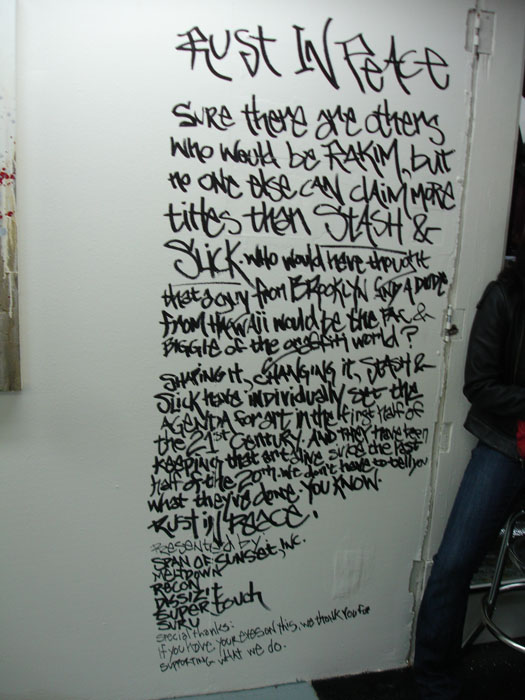 RUST IN PEACE
SURE there are others
who would be RAKIM, but
no one else can claim more
titles then STASH &
SLICK. who would have thought
that a guy from BROOKLYN and a dude
from Hawaii would be the PAC &
BIGGIE of the graffiti world?
SHAPING it, CHANGING it, STASH &
SLICK have individually set the
AGENDA for art in the first half of
the 21st Century. AND they have been
keeping that art alive since the last
half of the 20th. we don't have to tell you
what they've done. YOU KNOW.
RUST IN PEACE.
PRESENTED by:
SPAN OF SUNSET, INC.
MELTDOWN
RECON
DISSIZIT
SUPER touch
SURU
special thanks:
if you have your eyes on this, we thank you for
supporting what we do.